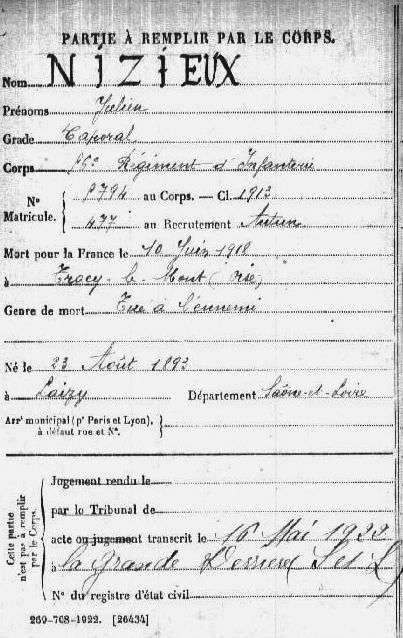 PARTIE À REMPLIR PAR LE CORPS.
Nom NIZIEUX
Prénoms Julien
Grade Caporal
Corps 56e Régiment d'Infanterie
N° Matricule. 8794 au Corps. — Cl. 1913
477 au Recrutement Autun
Mort pour la France le 10 Juin 1918
à Tracy-le-Mont (Oise)
Genre de mort Tué à l'ennemi
Né le 23 Août 1893
à Laizy Département Saône-et-Loire
Arrt municipal (pr Paris et Lyon), à défaut rue et N°.
Cette partie n'est pas à remplir par le Corps.
Jugement rendu le
par le Tribunal de
acte ou jugement transcrit le 16 Mai 1922
à la Grande Verrière S et L
N° du registre d'état civil
269-708-1922. [26434]